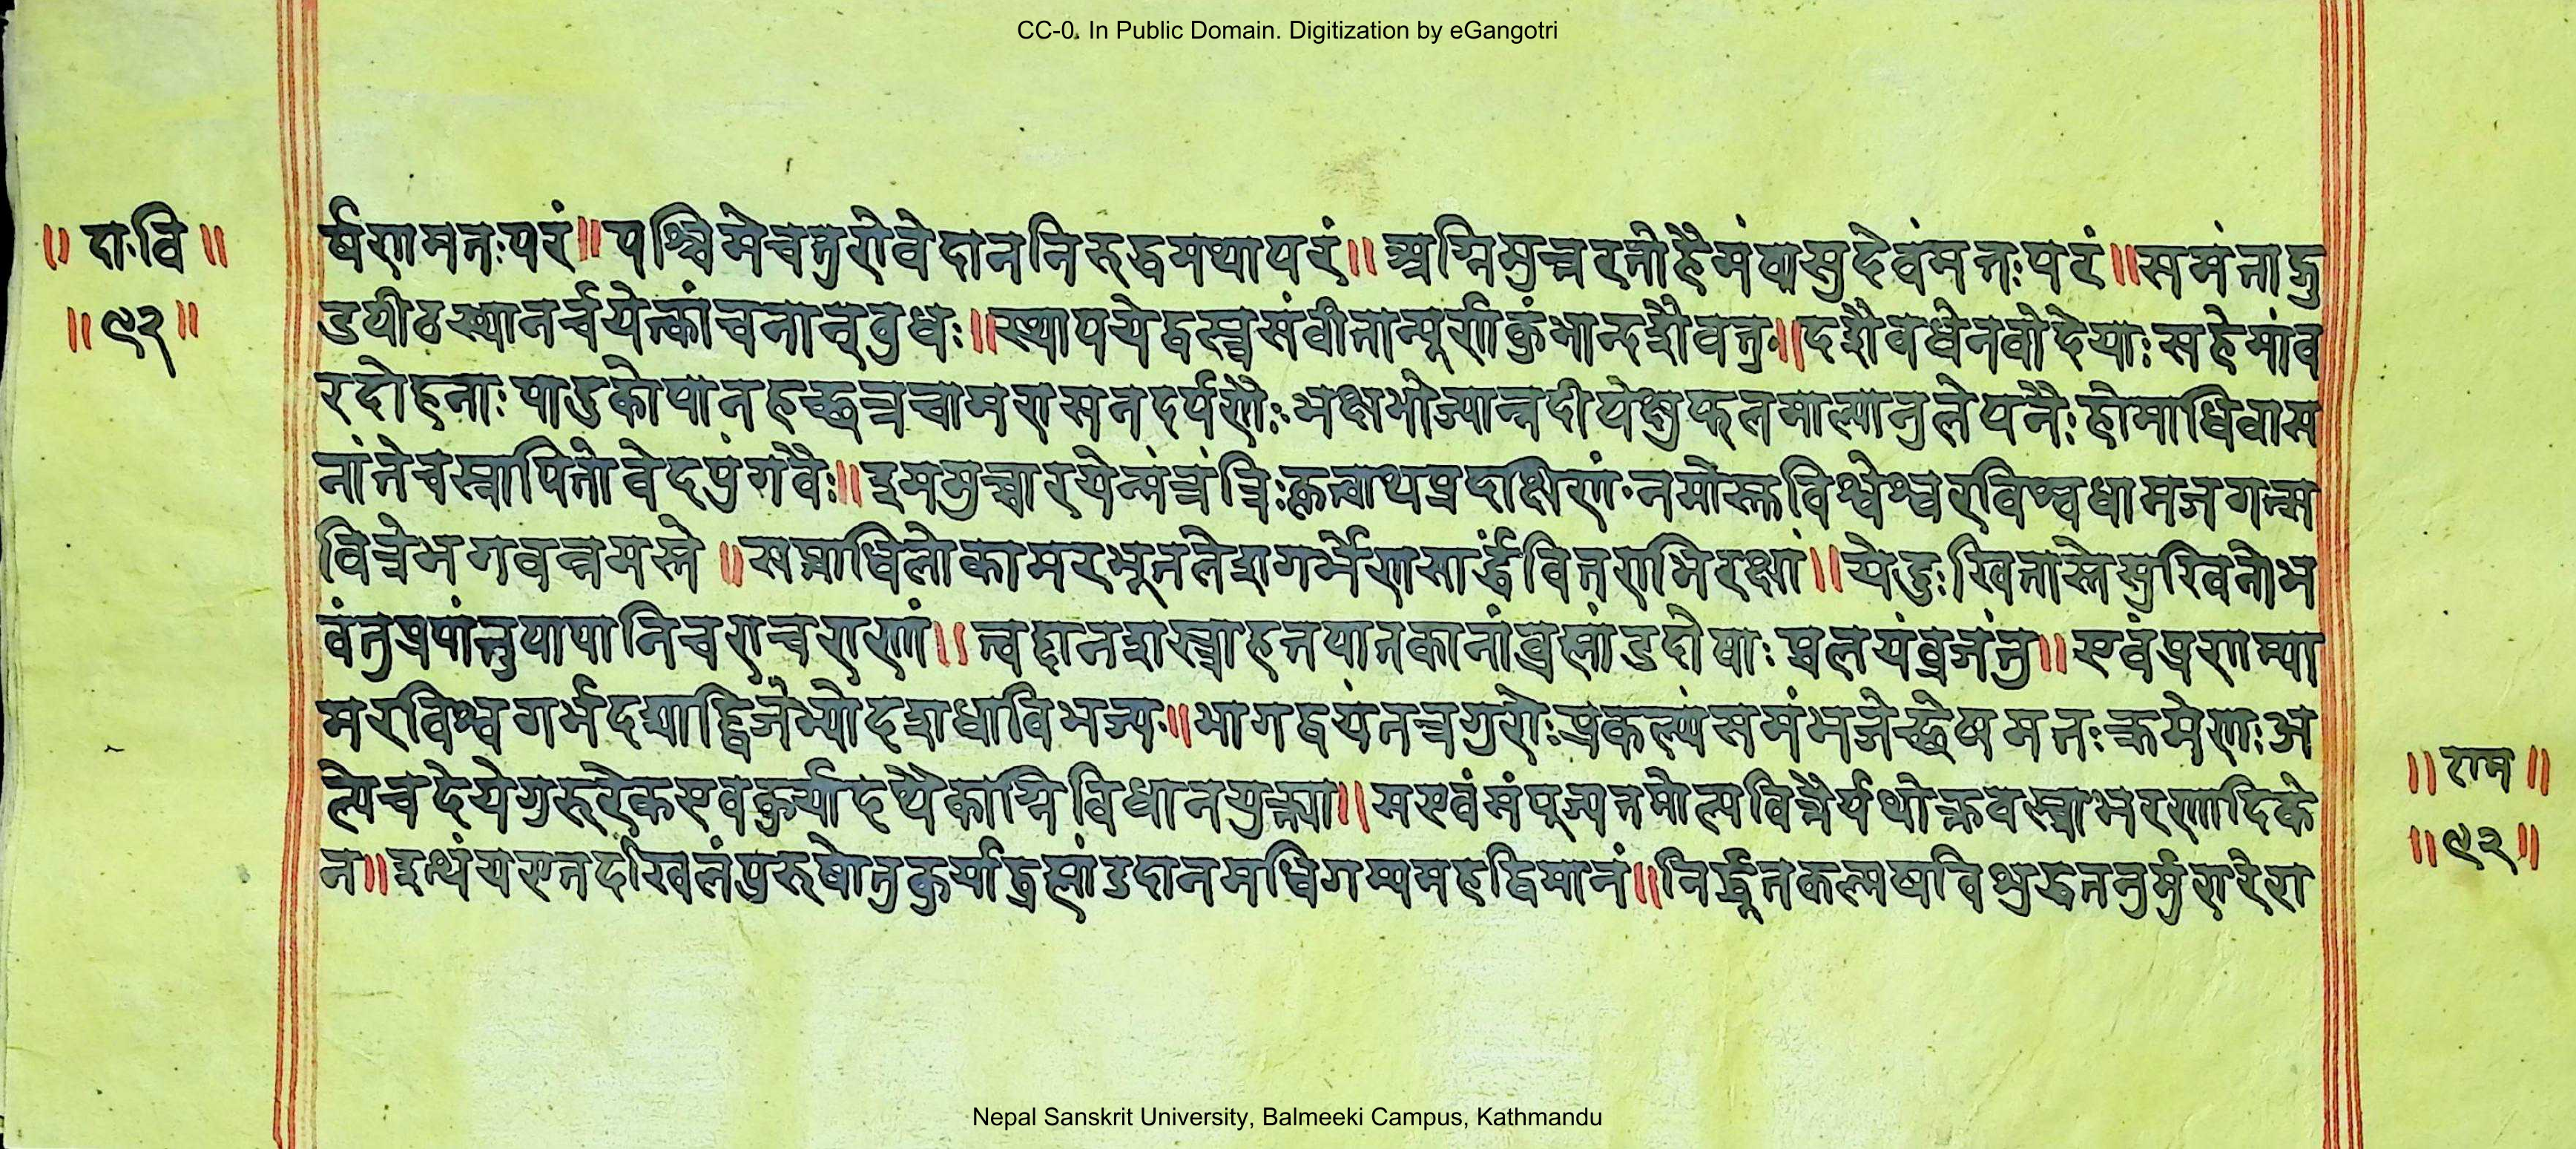 CC-0. In Public Domain. Digitization by eGangotri
॥ दा.वि ॥
॥ ९२ ॥
र्षणमतःपरं॥पश्चिमेचतुरोवेदाननिरुद्धमथापरं॥अग्निमुत्तरतोहैमंवासुदेवंमतःपरं॥समंताद्गु
डपीठस्थानर्चयेत्कांचनान्बुधः॥स्थापयेद्वस्त्रसंवीतान्पूर्णकुंभान्दशैवतु॥दशैवधेनवोदेयाःसहेमांब
रदोहनाः पादुकोपानहच्छत्रचामरासनदर्पणैः भक्षभोज्यान्नदीपेक्षुफलमाल्यानुलेपनैः होमाधिवास
नांतेचस्नापितोवेदपुंगवैः॥इममुच्चारयेन्मंत्रंत्रिःकृत्वाथप्रदक्षिणं॰नमोस्तुविश्वेश्वरविश्वधामजगत्स
वित्रेभगवन्नमस्ते ॥सप्ताधिलोकामरभूतलेशगर्भेणसार्द्धंवितराभिरक्षां॥येदुःखितास्तेसुखिनोभ
वंतुप्रयांतुपापानिचराचराणां॥त्वद्दानशस्त्राहतपातकानांब्रह्मांडदोषाः प्रलयंव्रजंतु॥एवंप्रणम्या
मरविश्वगर्भदद्याद्द्विजेभ्योदशधाविभज्यः॥भागद्वयंतत्रगुरोःप्रकल्प्यंसमंभजेच्छेषमतःक्रमेणः अ
ल्पेचदेयेगुरुरेकएवकुर्यादथैकाग्निविधानयुक्त्या॥सएवंसंपूज्यतमोल्पवित्तैर्यथोक्तवस्त्राभरणादिके
न॥इत्थंयएतदखिलंपुरुषोतुकुर्याद्ब्रह्मांडदानमधिगम्यमहद्विमानं॥निर्द्धूतकल्मषविशुद्धतनुर्मुरारेरा
॥ राम ॥
॥ ९२ ॥
Nepal Sanskrit University, Balmeeki Campus, Kathmandu